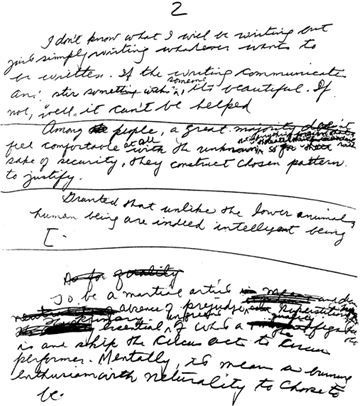 2
I don't know what I will be writing but
just simply writing whatever wants to
be written. If the writing communicates
and stir something within someone, its beautiful. If
not, well, it can't be helped
Among people, a great majority don't
feel comfortable at all with the unknown
sake of security, they construct chosen pattern
to justify.
Granted that unlike the lower animals,
human being are indeed intelligent being
[.
As for quality
To be a martial artist means and
absence of prejudice, superstition
essential, of what a
is and skip the circus acts to circus
performer. Mentally, it means a burning
enthusiasm with neutrality to choose to
be.